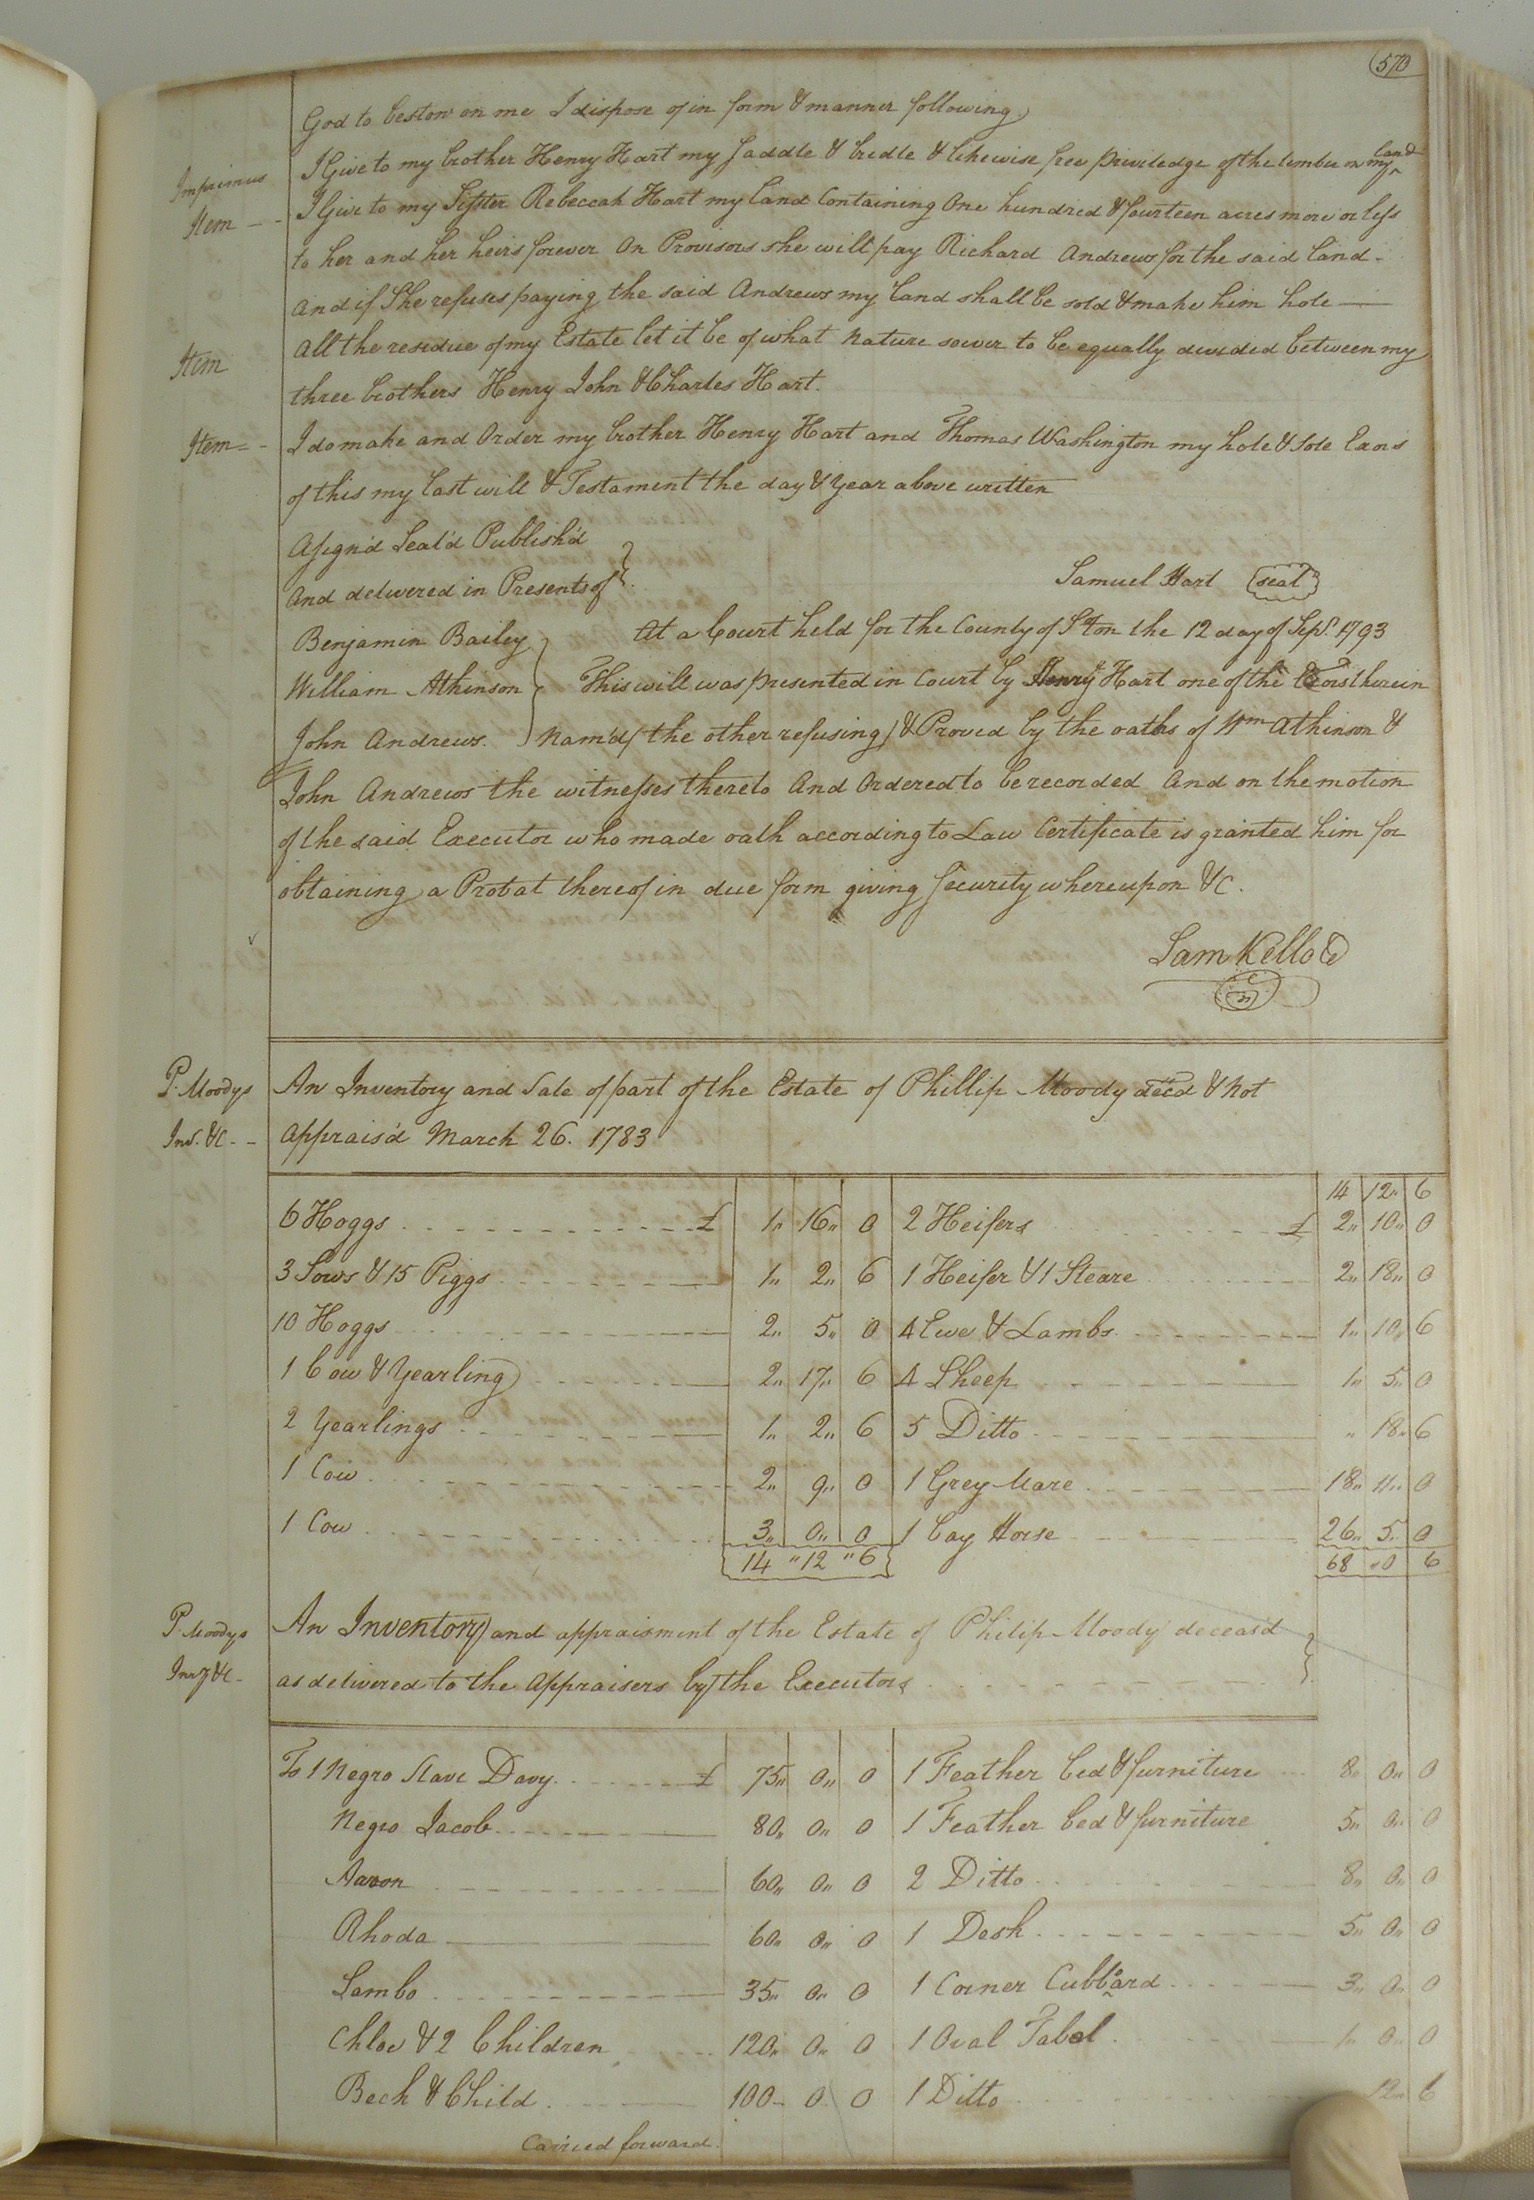 570
God to bestow on me I dispose of in form & manner following
Imprimus I Give to my brother Henry Hart my Saddle & bridle & likewise free priviledge of the timber on my land
Item - - I Give to my Sister Rebeccah Hart my land Containing One hundred & fourteen acres more or less
to her and her heirs forever On Provisors she will pay Richard Andrews for the said land -
And if She refuses paying the said Andrews my land shall be sold & make him hole —
Item All the residue of my Estate let it be of what Nature sower to be equally divided between my
three brothers Henry John & Charles Hart.
Item = - I do make and Order my brother Henry Hart and Thomas Washington my hole & Sole Exors
of this my last will & Testament the day & Year above written
Asign'd Seal'd Publish'd
And delivered in Presents of Samuel Hart seal
Benjamin Bailey At a Court held for the County of Soton the 12 day of Sept. 1793
William Atkinson This will was presented in Court by Henry Hart one of the Exors therein
John Andrews. Nam'd (the other refusing) & Proved by the oaths of Wm Atkinson &
John Andrews the witnesses thereto And Ordered to be recorded And on the motion
of the said Executor who made oath according to Law Certificate is granted him for
obtaining a Probat thereof in due form giving Security whereupon &C.
Sam Kello C
P. Moodys An Inventory and Sale of part of the Estate of Phillip Moody decd & Not
Inv. &C - - Apprais'd March 26. 1783
14 12 6
6 Hoggs £ 1 16 0 2 Heifers £ 2 10 0
3 Sows & 15 Piggs 1 2 6 1 Heifer & 1 Steare 2 18 0
10 Hoggs 2 5 0 4 Ewe & Lambs 1 10 6
1 Cow & Yearling 2 17 6 4 Sheep 1 5 0
2 Yearlings 1 2 6 5 Ditto " 18 6
1 Cow 2 9 0 1 Grey Mare 18 11 0
1 Cow 3 0 0 1 bay Horse 26 5 0
14 " 12 " 6 68 " 0 6
P. Moodys An Inventory and appraisment of the Estate of Philip Moody deceas'd
Inv'y &C - as delivered to the Appraisers by the Executors
To 1 Negro Slave Davy £ 75 0 0 1 Feather bed & furniture 8 0 0
Negro Jacob 80 0 0 1 Feather bed & furniture 5 0 0
Aaron 60 0 0 2 Ditto 8 0 0
Rhoda 60 0 0 1 Desk 5 0 0
Sambo 35 0 0 1 Corner Cubboard 3 0 0
Chloe & 2 Children 120 0 0 1 Oval Tabel 1 0 0
Beck & Child 100 0 0 1 Ditto 12 6
Carried forward.